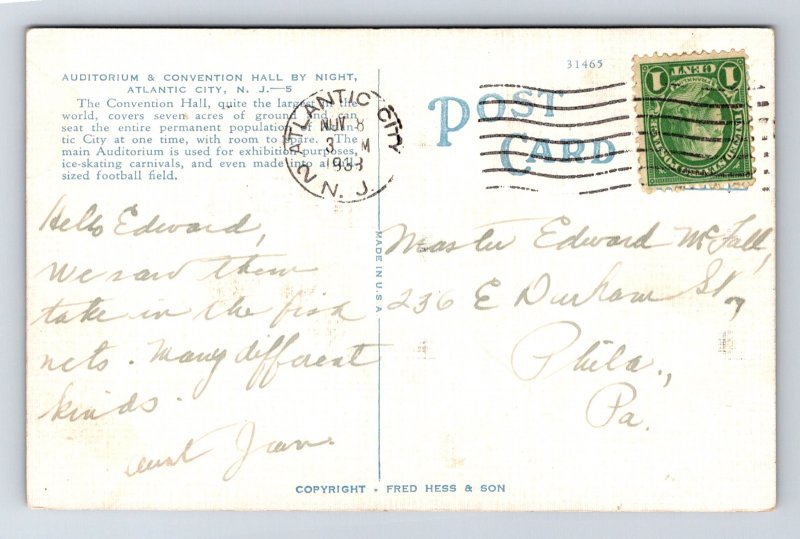 AUDITORIUM & CONVENTION HALL BY NIGHT,
ATLANTIC CITY, N. J.—5
The Convention Hall, quite the largest in the
world, covers seven acres of ground and can
seat the entire permanent population of Atlan-
tic City at one time, with room to spare. The
main Auditorium is used for exhibition purposes,
ice-skating carnivals, and even made into a full-
sized football field.
Hello Edward,
We saw them
take in the fish
nets. Many different
kinds.
Aunt Jean.
MADE IN U.S.A
31465
POST
CARD
ATLANTIC CITY
3 M
1933
2 N. J.
1 CENT 1
Master Edward McFall,
236 E Durham St,
Phila.,
Pa.
COPYRIGHT - FRED HESS & SON